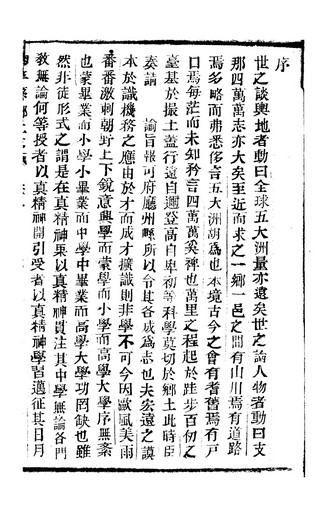 序
世之談輿地者動曰全球五大洲量亦遠矣世之論人物者動曰支
那四萬萬志亦大矣至近而求之一鄉一邑之間有山川焉有道路
焉多略而弗悉侈言五大洲胡爲也本境古今之會有耆舊焉有戸
口焉每茫而未知矜言四萬萬奚裨也萬里之程起於跬步百仞之
臺基於撮土蓋行遠自邇登高自卑初等科學莫切於鄉土此時臣
奏請　諭旨報可府廳州縣所以令其各成爲志也夫宏遠之謨
本於識機務之應由於才而成才擴識則非學不可今因歐風美雨
番番激刺朝野上下銳意興學而蒙學而小學而高學大學序無紊
也蒙畢業而小學小畢業而中學中畢業而高學大學功罔缺也雖
然非徒形式之謂是在真精神果以真精神貫注其中學無論各門
敎無論何等授者以真精神開引受者以真精神學習邁征其日月